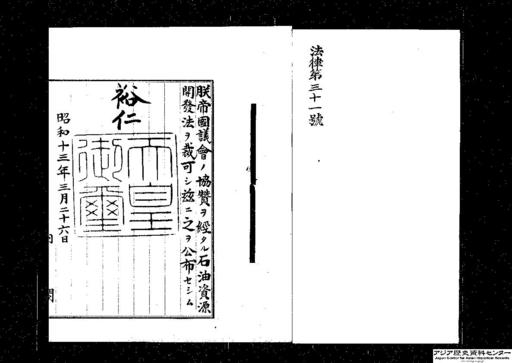 法律第三十一號
朕帝國議會ノ協贊ヲ經タル石油資源
開發法ヲ裁可シ茲ニ之ヲ公布セシム
裕仁
天皇
御璽
昭和十三年三月二十六日
内
閣
アジア歴史資料センター
Japan Center for Asian Historical Records